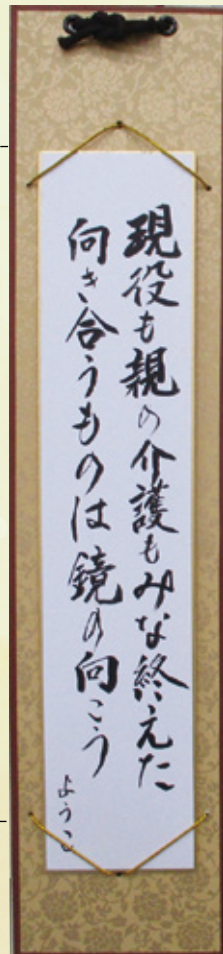 現役も親の介護もみな終えた
向き合うものは鏡の向こう
ようこ